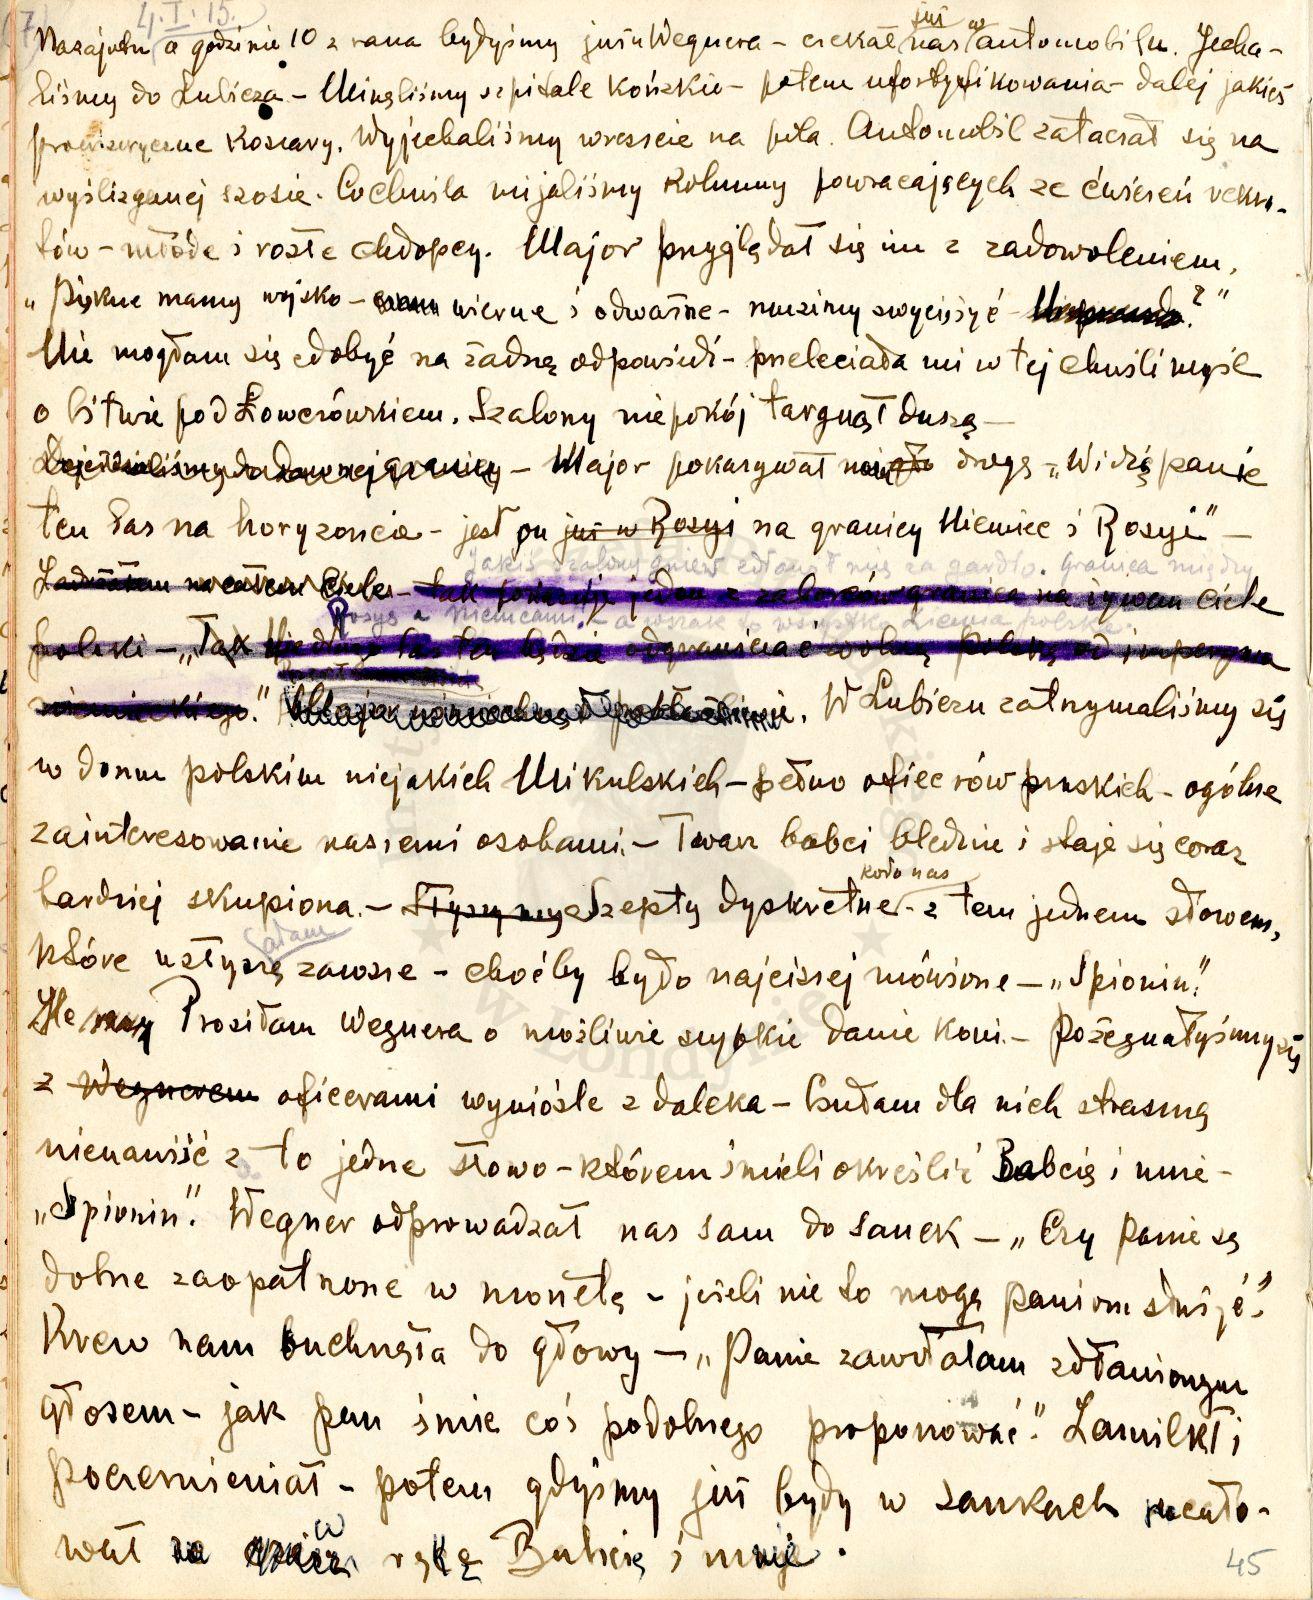 4.I.15.
Nazajutrz o godzinie 10 z rana byłyśmy już u Wegnera – czekał już nas w automobilu. Jecha-
liśmy do Lubicza – Minęliśmy szpitale końskie – potem ufortyfikowania – dalej jakieś
prowizoryczne koszary. Wyjechaliśmy wreszcie na pola. Automobil zataczał się na
wyślizganej szosie. Co chwila mijaliśmy kolumny powracających ze ćwiczeń rekru-
tów – młode i rosłe chłopcy. Major przyglądał się im z zadowoleniem,
„Piękne mamy wojsko – wierne i odważne – musimy zwyciężyć – ?"
Nie mogłam się zdobyć na żadną odpowiedź – przeleciała mi w tej chwili myśl
o bitwie pod Łowczówkiem. Szalony niepokój targnął duszą –
Dojeżdżaliśmy do dawnej granicy – Major pokazywał nam drogę – „Widzą panie
ten las na horyzoncie – jest on już w Rosyi na granicy Niemiec i Rosyi" –
Jakiś szalony gniew zdławił mię za gardło. Granica między
Zadrżałam na całem ciele – tak pokazuje jeden z zaborców granicę na żywem ciele
Rosyą a Niemcami. – a wszak to wszystko ziemia polska.
polski – „Tak Niedługo las ten będzie odgraniczać wolną Polskę od imperyum
niemieckiego." Major uśmiechnął się pobłażliwie. W Lubiczu zatrzymaliśmy się
w domu polskim niejakich Mikulskich – pełno oficerów pruskich – ogólne
zainteresowanie naszemi osobami. – Twarz babci blednie i staje się coraz
bardziej skupiona. – Słyszymy Szepty dyskretne koło nas – z tem jednem słowem,
które usłyszę zawsze – choćby było najciszej mówione – „Spionin".
Prosiłam Wegnera o możliwie szybkie danie koni. – Pożegnałyśmy się
z Wegnerem oficerami wyniośle z daleka – Czułam dla nich straszną
nienawiść za to jedne słowo – którem śmieli określić Babcię i mnie –
„Spionin". Wegner odprowadzał nas sam do sanek – „Czy Panie są
dobrze zaopatrzone w monetę – jeżeli nie to mogę paniom służyć".
Krew nam buchnęła do głowy – „Panie zawołałam zdławionym
głosem – jak pan śmie coś podobnego proponować". Zamilkł i
poczerwieniał – potem gdyśmy już były w sankach ucało-
wał w rękę Babcię i mnie.
45